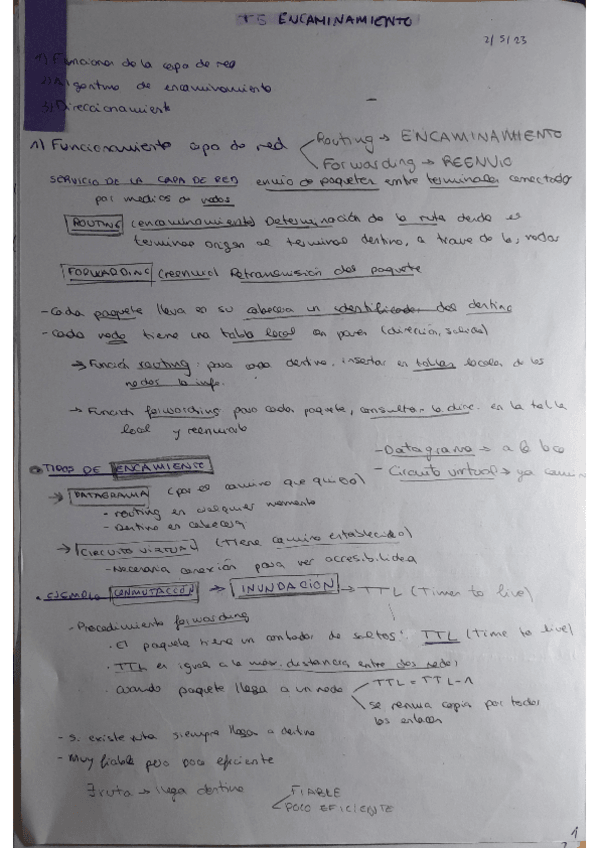 T5 ENCAMINAMIENTO
2/5/23
1) Funciones de la capa de red
2) Algoritmo de encaminamiento
3) Direccionamiento
1) Funcionamiento capa de red
Routing → ENCAMINAMIENTO
Forwarding → REENVIO
SERVICIO DE LA CAPA DE RED envio de paquetes entre terminales conectados
por medios de nodos
ROUTING (encaminamiento) Determinación de la ruta desde el
terminal origen al terminal destino, a traves de los nodos
FORWARDING (reenvio) Retransmisión del paquete
- Cada paquete lleva en su cabecera un identificador del destino
- Cada nodo tiene una tabla local con pares (dirección, salida)
→ Función routing: para cada destino, insertar en tablas locales de los
nodos la info.
→ Función forwarding para cada paquete, consultar la direc. en la tabla
local y reenviarlo
- Datagrama → a lo loco
- Circuito virtual → ya camino
TIPOS DE ENCAMIENTO
→ DATAGRAMA (por el camino que quiso)
- routing en cualquier momento
- Destino en cabecera
→ CIRCUITO VIRTUAL (Tiene camino establecido)
- Necesaria conexión para ver accesibilidad
• EJEMPLO CONMUTACCIÓN → INUNDACIÓN → TTL (Timer to live)
- Procedimiento forwarding
· El paquete tiene un contador de saltos: TTL (Time to live)
· TTL es igual a la máx. distancia entre dos nodos
· Cuando paquete llega a un nodo
TTL = TTL - 1
se reenvia copia por todos
los enlaces
- Si existe ruta siempre llega a destino
- Muy fiable pero poco eficiente
∃ ruta → llega destino
FIABLE
POCO EFICIENTE
1